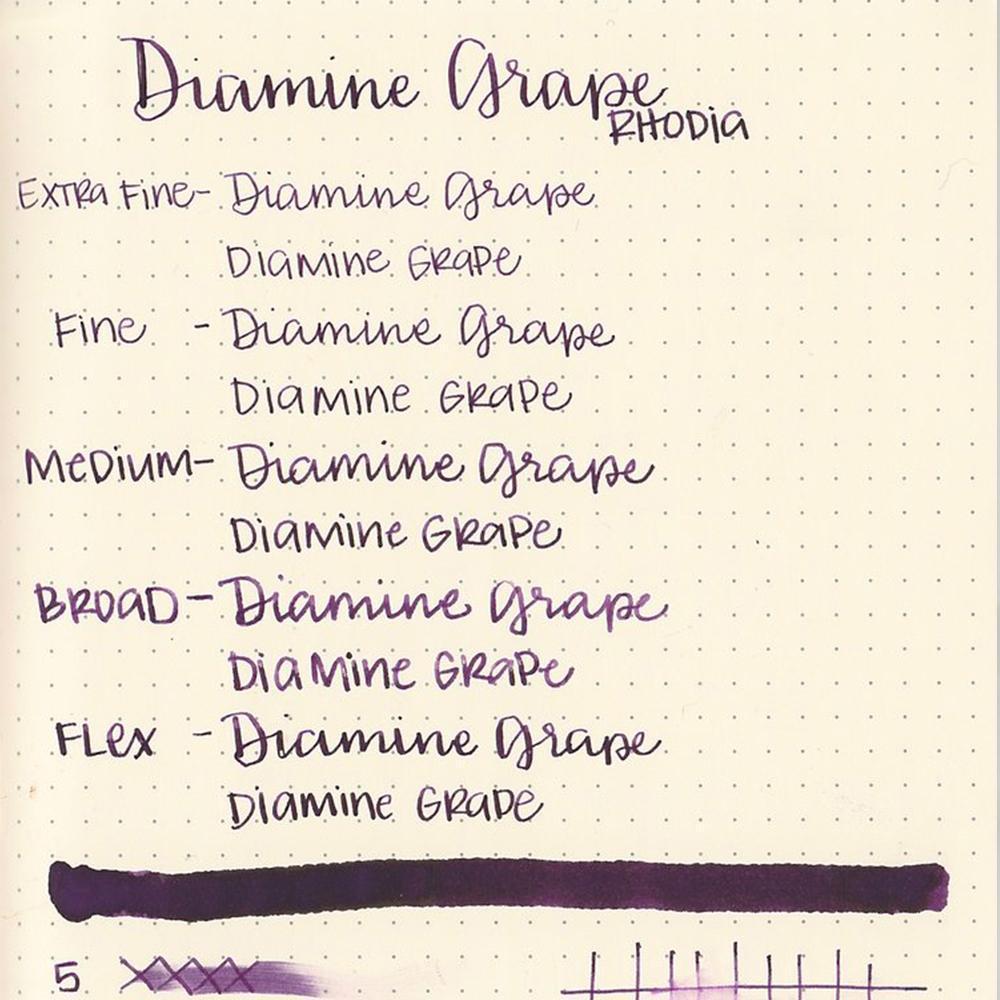 Diamine Grape
RHODia
EXTRa Fine- Diamine Grape
DiaMine GRaPe
Fine - Diamine Grape
DiaMine GRaPe
MeDiuM- Diamine Grape
DiaMine GRaPe
BROaD- Diamine Grape
DiaMine GRaPe
FLex - Diamine Grape
Diamine GRaPe
5